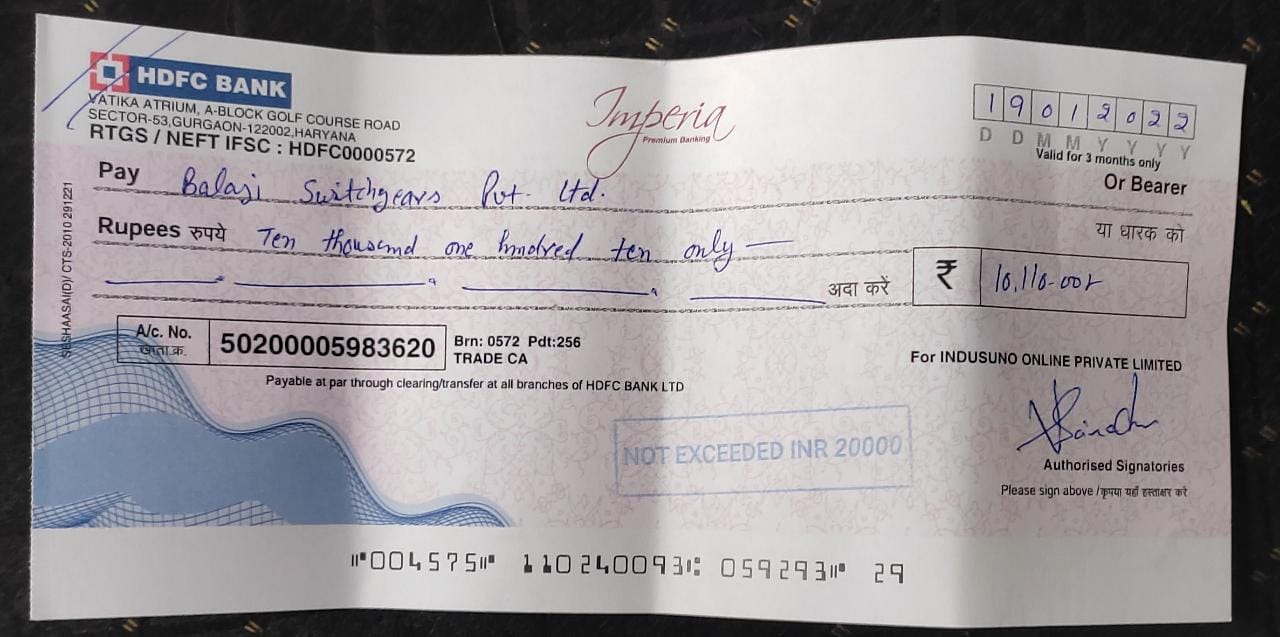 HDFC BANK
VATIKA ATRIUM, A-BLOCK GOLF COURSE ROAD
SECTOR-53,GURGAON-122002,HARYANA
RTGS / NEFT IFSC : HDFC0000572
Imperia
Premium Banking
1 9 0 1 2 0 2 2
D D M M Y Y Y Y
Valid for 3 months only
Pay Balaji Switchgears Pvt. Ltd.
Or Bearer
या धारक को
Rupees रुपये Ten thousand one hundred ten only
अदा करें ₹ 10,110-00
A/c. No.
खाता क्र.
50200005983620
Brn: 0572 Pdt:256
TRADE CA
Payable at par through clearing/transfer at all branches of HDFC BANK LTD
For INDUSUNO ONLINE PRIVATE LIMITED
NOT EXCEEDED INR 20000
Authorised Signatories
Please sign above /कृपया यहाँ हस्ताक्षर करे
CTS-2010 291221
⑈004575⑈ 110240093⑆ 059293⑈ 29